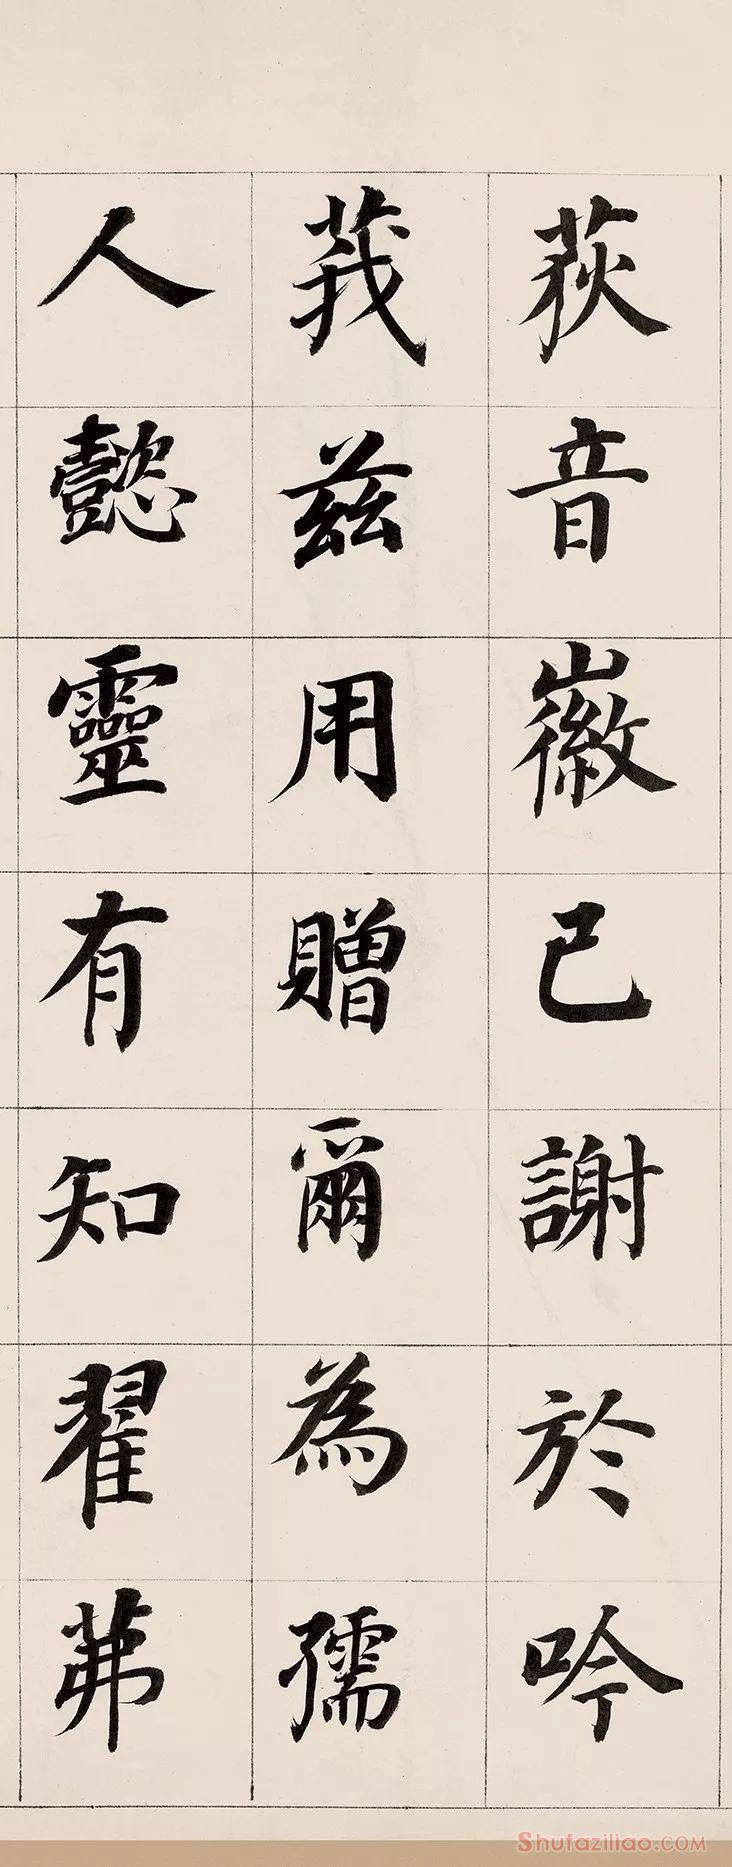 荻音徽已謝於吟
莪兹用贈爾為孺
人懿靈有知翟茀
Shufaziliao.COM